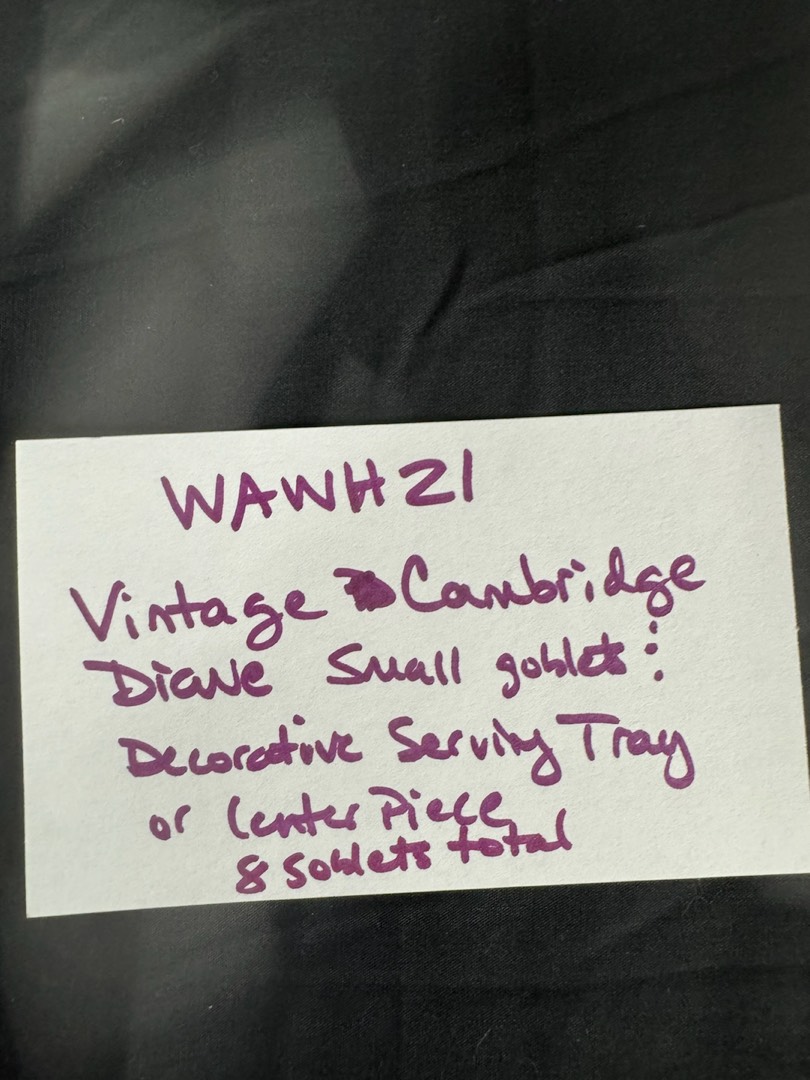 WAWH21
Vintage Cambridge
Diane Small goblets:
Decorative Serving Tray
or Center Piece
8 goblets total